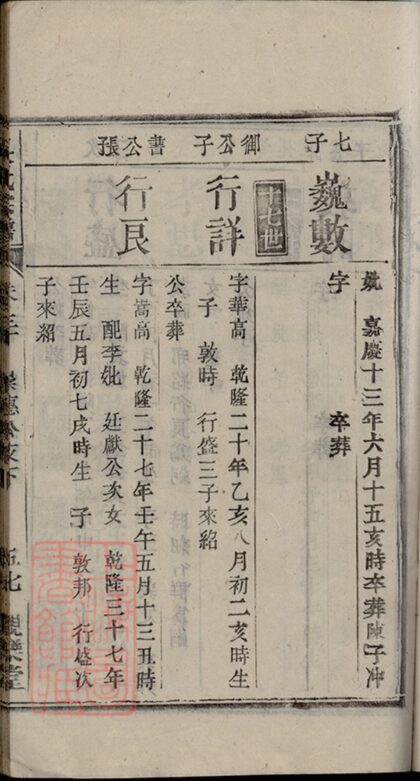 七子
御公子
書公張
巍數
氎 嘉慶十三年六月十五亥時卒葬陳子冲
字 卒葬
十七世
行詳
字華高 乾隆二十年乙亥八月初二亥時生
子 敦時 行盛三子來紹
公卒葬
行艮
字嵩高 乾隆二十七年壬午五月十三丑時
生 配李妣 廷獻公次女 乾隆三十七年
壬辰五月初七戌時生 子 敦邦 行盛次
子來紹
親樂堂